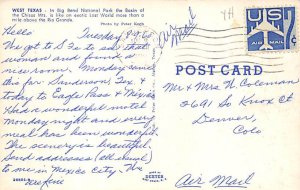 WEST TEXAS - In Big Bend National Park the Basin of
the Chisos Mts. is like an exotic Lost World more than a
mile above the Rio Grande.
Photo by Peter Koch
Hello Tuesday
We got to
woman and found a
nice room. Monday
this far Sanderson, Tex. &
today to Eagle Pass & Mexico
Had a wonderful motel
Monday night and every
meal has been wonderful.
The scenery is beautiful.
Send addresses
to me in Mexico City.
Air Mail
U.S.
AIR MAIL
POST CARD
Mr & Mrs W Coleman
2691 So Knox Ct
Denver,
Colo
Air Mail
MADE BY
DEXTER